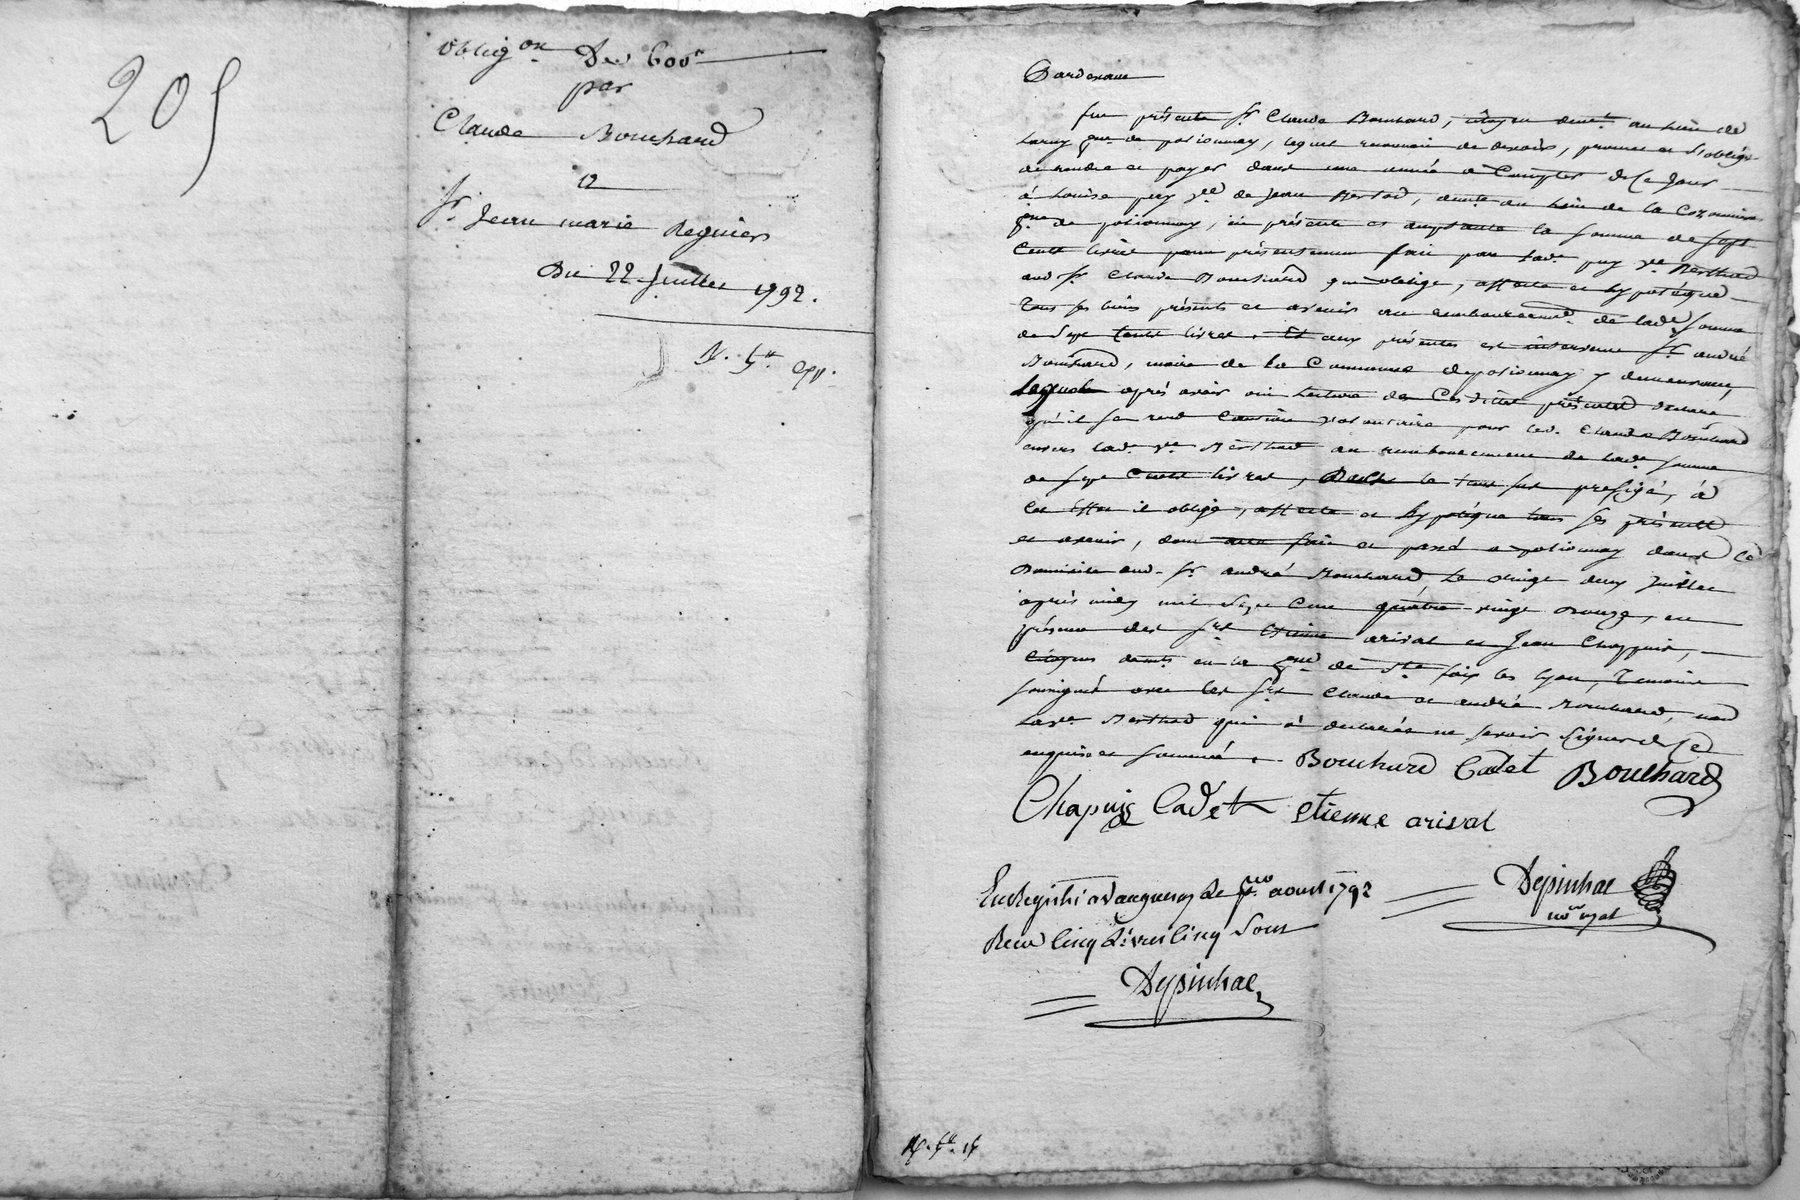 205
obligon. De 600ll
par
Claude Bouchard
a
Sr. Jean marie Regnier
Du 22 Juillet 1792.
Pardevant
fut présente Sr. Claude Bouchard, citoyen demt. au lieu de
de pollionnay, lequel de devoir, promet et s'oblige
de rendre et payer dans une année a Compter de Ce Jour
à Louise puy ve. de Jean Berthod, demte. au lieu de la
de pollionnay, ici présente et acceptante la somme de sept
Cent livres pour présentement fait par lade. puy ve. Berthod
aud. Sr. Claude Bouchard qui oblige, affecte et hypotéque
Tous ses biens présents et avenir au remboursemt. de lade. somme
de sept Cent livres. Et aux présentes est intervenu Sr. andré
Bouchard, maire de la Commune de pollionnay y demeurant,
lequel après avoir oui lecture de Cesdittes présentes déclare
qu'il se rend Caution volontaire pour led. Claude Bouchard
envers lad. ve. Berthod au remboursement de lade. somme
de sept Cent livres, dans le tems sus prefigé, à
Cet effet il oblige, affecte et hypotéque tous ses présents
et avenir, dont acte fait et passé a pollionnay dans le
Domicile dud. Sr. andré Bouchard le vingt deux Juillet
après midy mil sept Cent quatre vingt douze, en
présence des Srs. Etienne arival et Jean Chappuis,
Citoyens demts. en la de Ste. foix les lyon, Temoins
soussignés avec les Srs. Claude et andré Bouchard, non
lad. ve. Berthod qui a déclaré ne savoir signer de Ce
enquise et sommée. Bouchard Cadet Bouchard
Chapuis Cadet etienne arival
Enregistré a Vaugneray le pro. aoust 1792
Recu Cinq Livres Cinq Sous
Depinhac
Depinhac
nore. royal